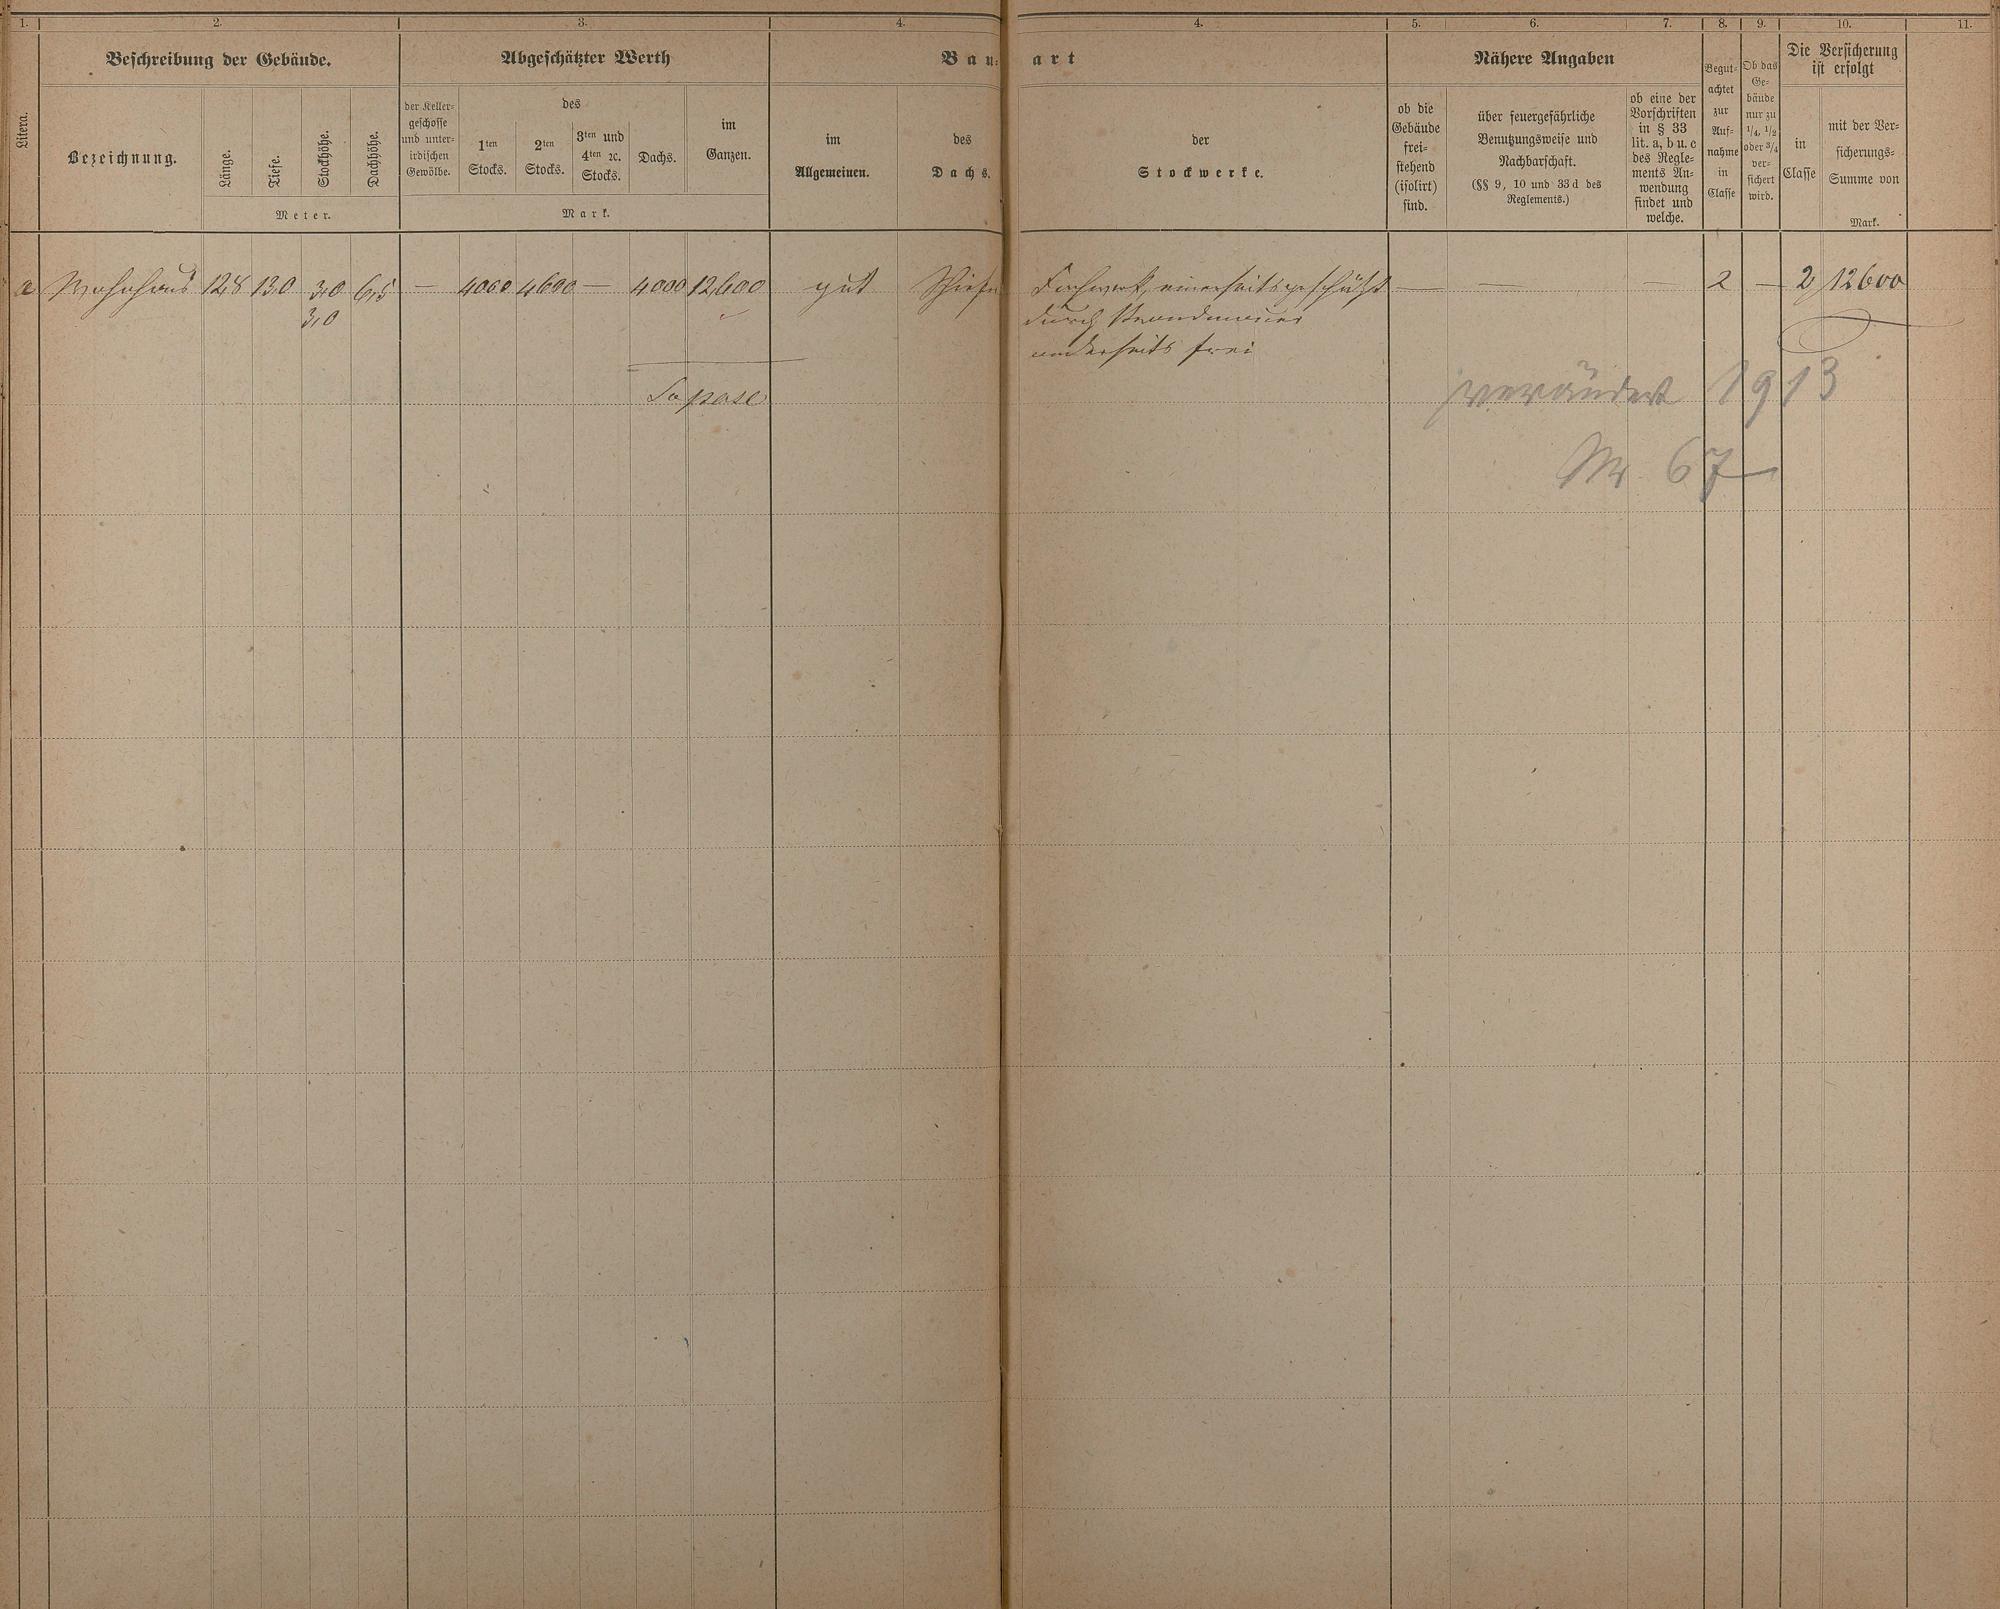 1. 2. 3. 4. 4. 5. 6. 7. 8. 9. 10. 11.
Litera.
Beschreibung der Gebäude.
Bezeichnung.
Länge.
Tiefe.
Stockhöhe.
Dachhöhe.
Meter.
Abgeschätzter Werth
der Keller-
geschosse
und unter-
irdischen
Gewölbe.
des
1ten
Stocks.
2ten
Stocks.
3ten und
4ten ꝛc.
Stocks.
Dachs.
im
Ganzen.
Mark.
Bau-
art
im
Allgemeinen.
des
Dachs.
der
Stockwerke.
ob die
Gebäude
frei-
stehend
(isolirt)
sind.
Nähere Angaben
über feuergefährliche
Benutzungsweise und
Nachbarschaft.
(§§ 9, 10 und 33 d des
Reglements.)
ob eine der
Vorschriften
in § 33
lit. a, b u. c
des Regle-
ments An-
wendung
findet und
welche.
Begut-
achtet
zur
Auf-
nahme
in
Classe
Ob das
Ge-
bäude
nur zu
1/4, 1/2
oder 3/4
ver-
sichert
wird.
Die Versicherung
ist erfolgt
in
Classe
mit der Ver-
sicherungs-
Summe von
Mark.
a Wohnhaus 12,8 13,0 3,0 6,5 — 4000 4600 — 4000 12,600 gut Schiefer Fachwerk, einerseits geschützt — — — 2 — 2 12600
3,0 durch Brandmauer
anderseits frei
verändert 1913
Nr 67